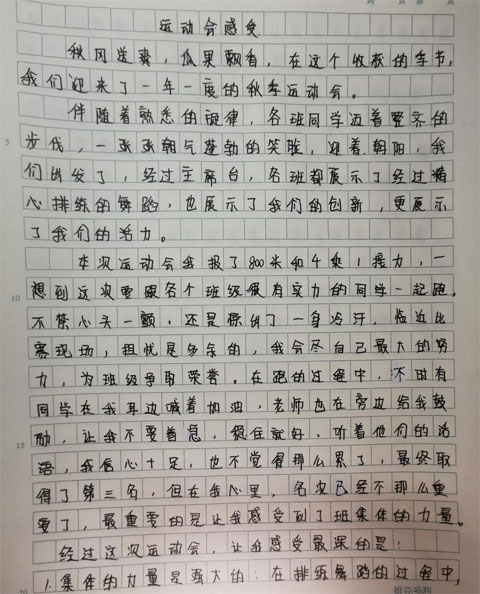 运动会感受
秋风送爽，瓜果飘香，在这个收获的季节，
我们迎来了一年一度的秋季运动会。
伴随着熟悉的旋律，各班同学迈着整齐的
5
步伐，一张张朝气蓬勃的笑脸，迎着朝阳，我
们出发了，经过主席台，各班都展示了经过精
心排练的舞蹈，也展示了我们的创新，更展示
了我们的活力。
本次运动会我报了800米和4乘1接力，一
10
想到这次要跟各个班级很有实力的同学一起跑，
不禁心头一颤，还是惊出了一身冷汗，临近比
赛现场，担忧是多余的，我会尽自己最大的努
力，为班级争取荣誉。在跑的过程中，不时有
同学在我耳边喊着加油，老师也在旁边给我鼓
15
励，让我不要着急，稳住就好，听着他们的话
语，我信心十足，也不觉得那么累了，最终取
得了第三名，但在我心里，名次已经不那么重
要了，最重要的是让我感受到了班集体的力量。
经过这次运动会，让我感受最深的是：
1.集体的力量是强大的：在排练舞蹈的过程中，
20